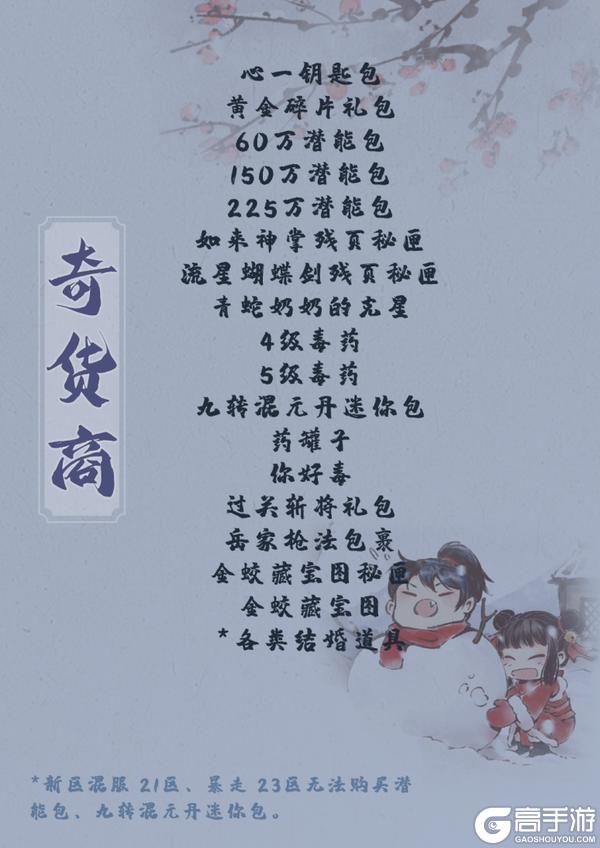 奇货商
心一钥匙包
黄金碎片礼包
60万潜能包
150万潜能包
225万潜能包
如来神掌残页秘匣
流星蝴蝶剑残页秘匣
青蛇奶奶的克星
4级毒药
5级毒药
九转混元丹迷你包
药罐子
你好毒
过关斩将礼包
岳家枪法包裹
金蛟藏宝图秘匣
金蛟藏宝图
*各类结婚道具
*新区混服 21区、暴走 23区无法购买潜
能包、九转混元丹迷你包。
高手游
GAOSHOUYOU.COM